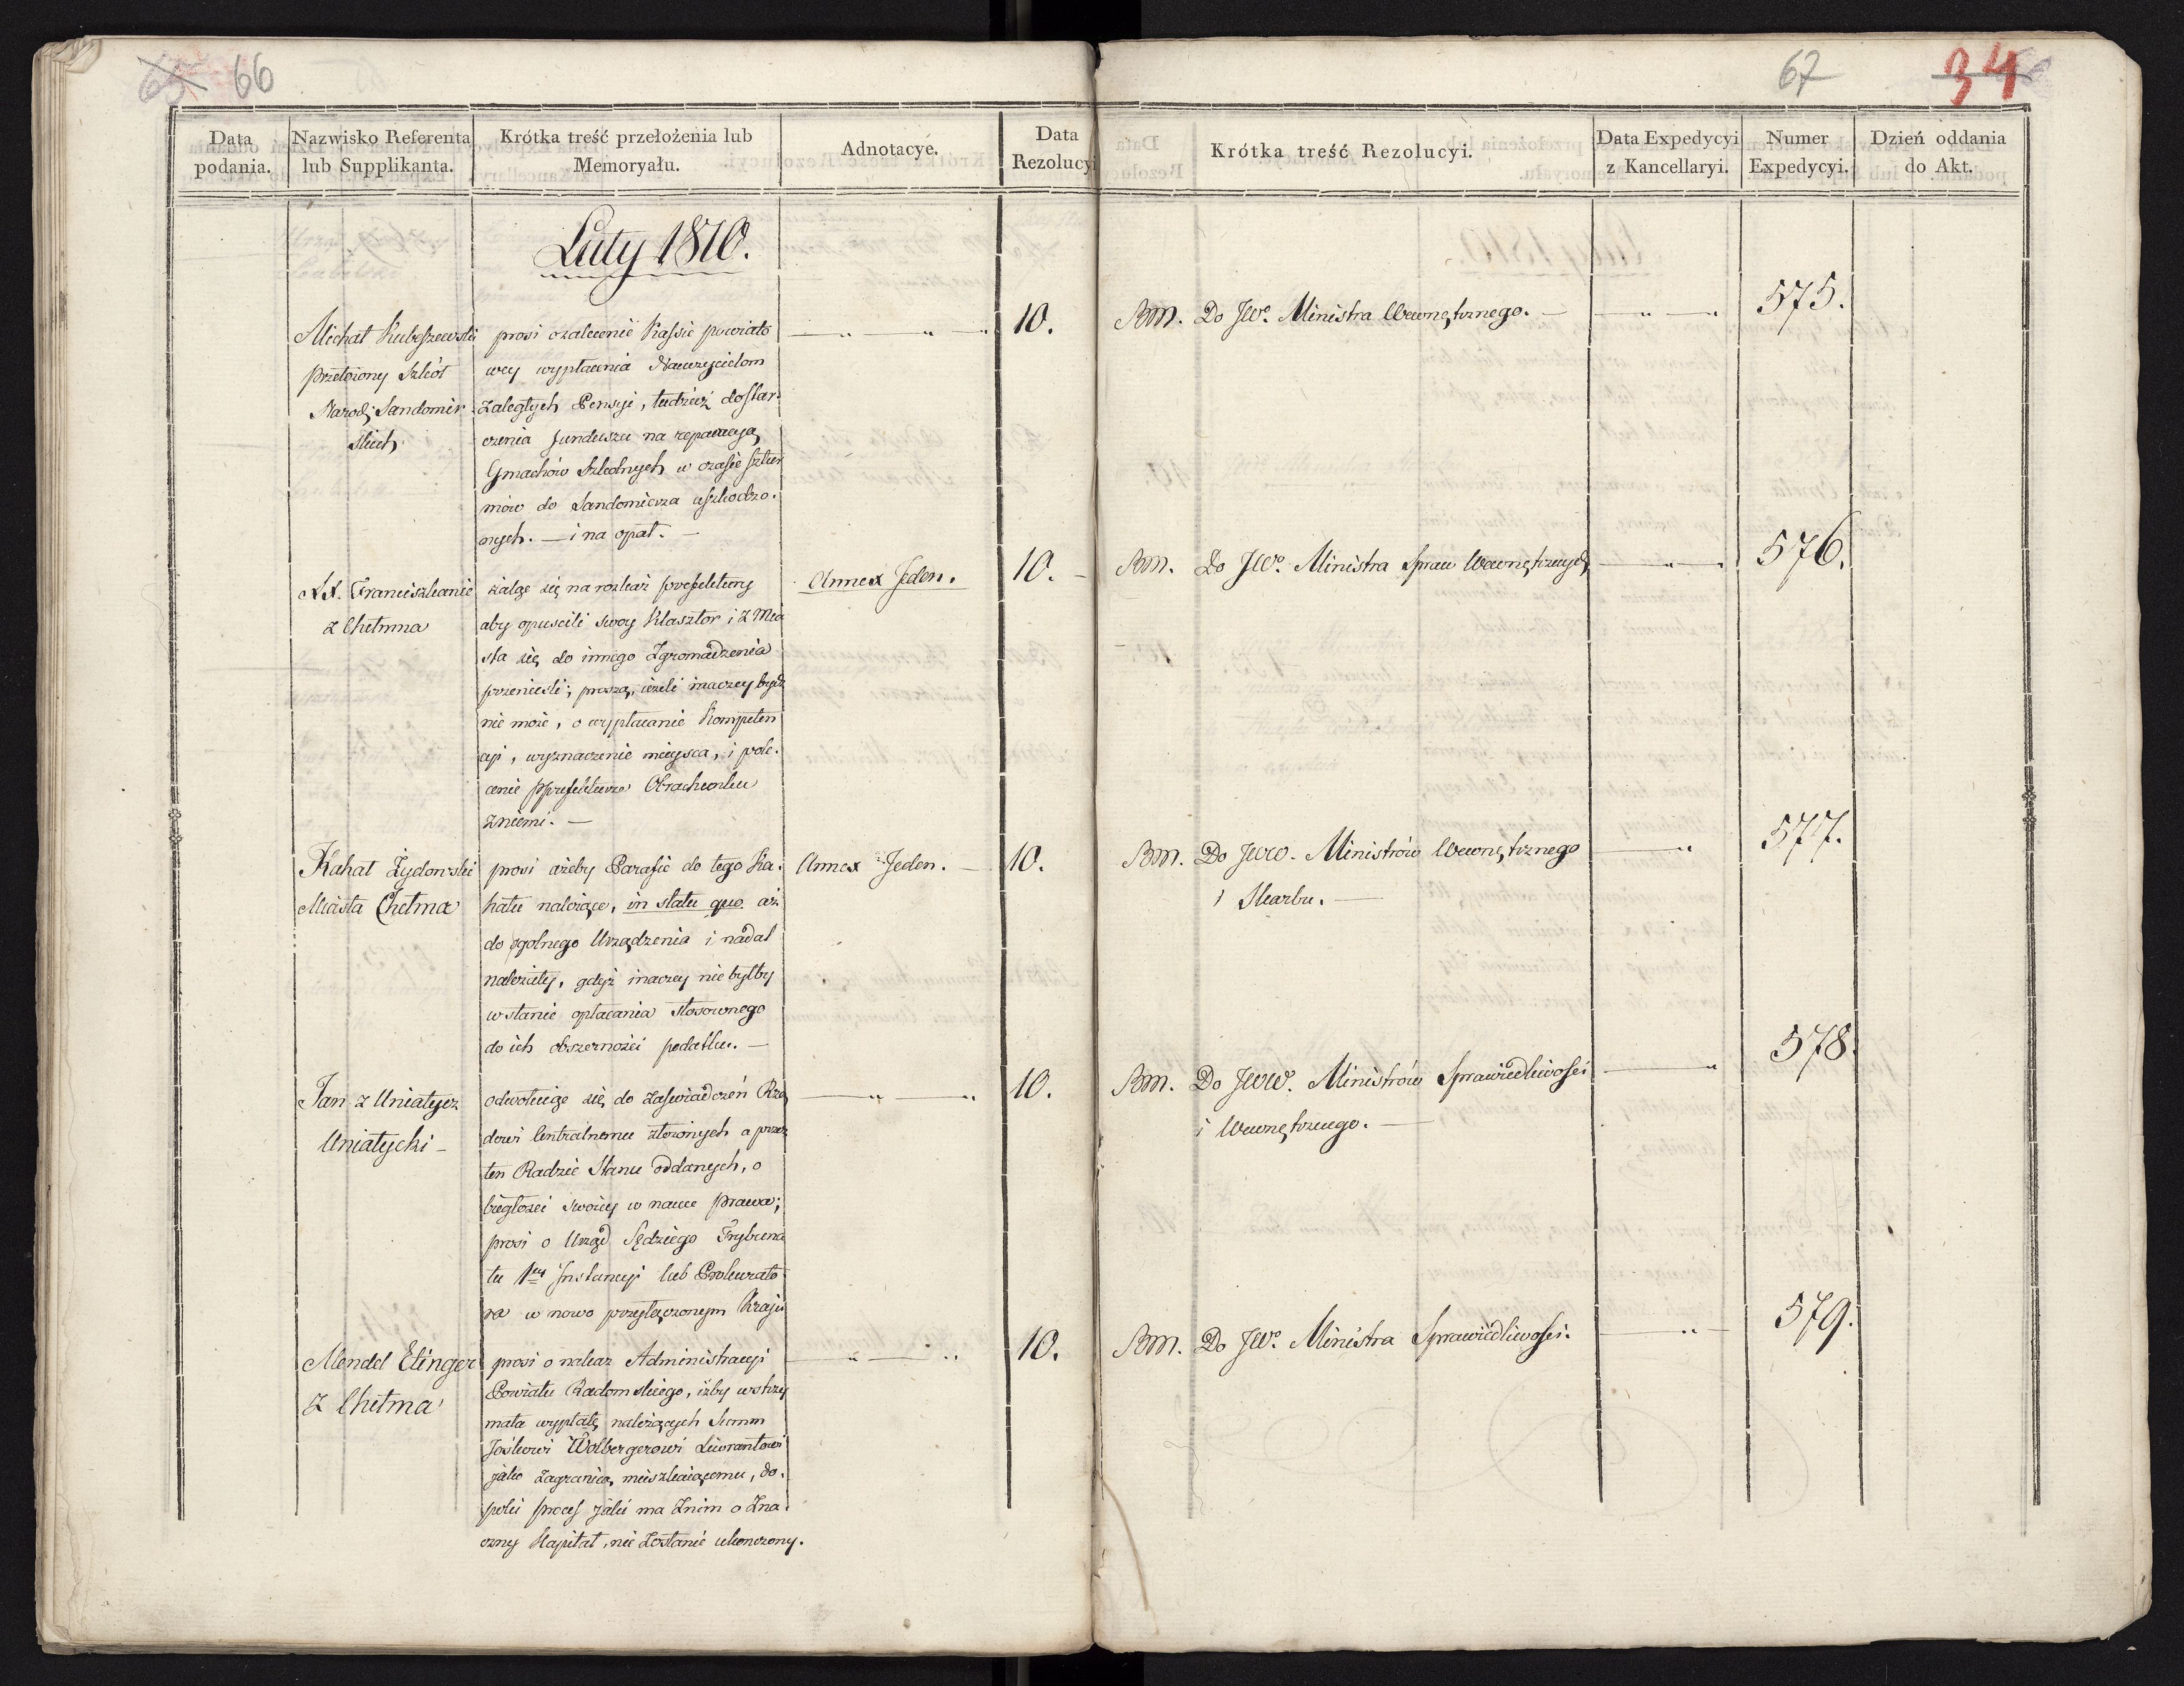 65 66
67 34
Data podania. | Nazwisko Referenta lub Supplikanta. | Krótka treść przełożenia lub Memoryału. | Adnotacye. | Data Rezolucyi | Krótka treść Rezolucyi. | Data Expedycyi z Kancellaryi. | Numer Expedycyi. | Dzień oddania do Akt.
Luty 1810.
Michał Kubeszewski
przełożony Szkół
Narod: Sandomir
skich
prosi o zalecenie Kassie powiato
wey wypłacenia Nauczycielom
zaległych Pensyi, tudzież dostar-
czenia funduszu na reparacyą
Gmachów Szkolnych w czasie sztur
mów do Sandomierza uszkodzo-
nych. — i na opał. —
10.
Bm. Do JW. Ministra Wewnętrznego. —
575.
XX. Franciszkanie
z Chełmna
żalą się na rozkaz prefektury
aby opuscili swoy Klasztor i z Mia
sta się do innego Zgromadzenia
przenieśli; proszą, ieżeli inaczey bydź
nie może, o wypłacanie Kompeten
cyi, wyznaczenie mieysca, i pole-
cenie prefekturze Obrachunku
z niemi. —
Annex Jeden.
10. -
Bm. Do JW. Ministra Spraw Wewnętrznych
576.
Kahał Żydowski
Miasta Chełma
prosi ażeby Parafie do tego Ka-
hału należące, in statu quo aż
do ogolnego Urządzenia i nadal
należały, gdyż inaczey nie byłby
w stanie opłacania stosownego
do ich obszerności podatku. —
Annex Jeden. —
10.
Bm. Do JWW. Ministrów Wewnętrznego
i Skarbu. —
577.
Jan z Uniatycz
Uniatycki -
odwołuie się do zaświadczeń Rzą
dowi Centralnemu złożonych a przez
ten Radzie Stanu oddanych, o
biegłości swoiey w nauce prawa;
prosi o Urząd Sędziego Trybuna
łu 1ey Instancyi lub Prokurato
ra w nowo przyłączonym Kraju
10.
Bm. Do JWW. Ministrów Sprawiedliwości
i Wewnętrznego. —
578.
Mendel Etinger
z Chełma
prosi o nakaz Administracyi
Powiatu Radomskiego, iżby wstrzy
mała wypłatę należących Summ
Jośkowi Wolbergerowi Liwrantowi
jako zagranicą mieszkaiącemu, do-
poki proces jaki ma z nim o zna-
czny Kapitał, nie zostanie ukonczony.
10.
Bm. Do JW. Ministra Sprawiedliwości.
579.